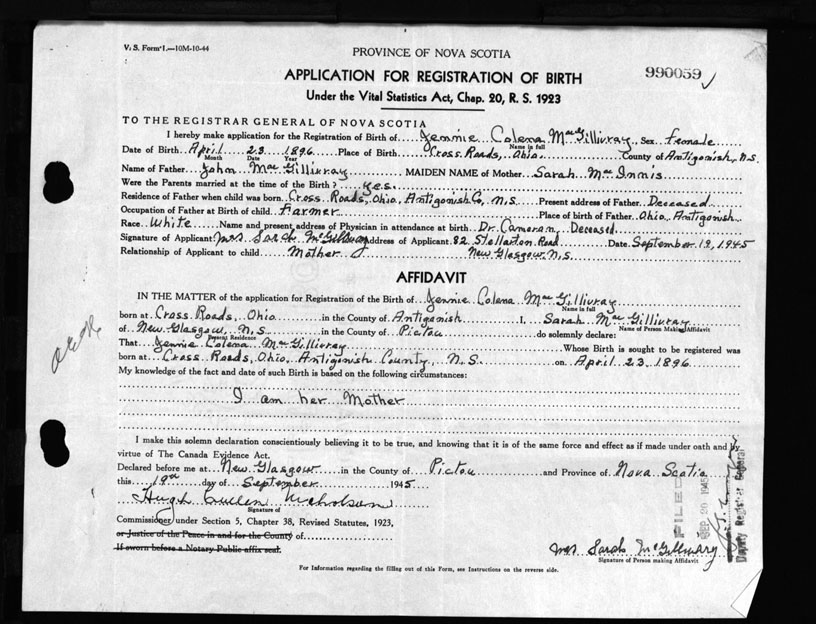 V. S. Form 1.—10M-10-44
PROVINCE OF NOVA SCOTIA
990059
APPLICATION FOR REGISTRATION OF BIRTH
Under the Vital Statistics Act, Chap. 20, R. S. 1923
TO THE REGISTRAR GENERAL OF NOVA SCOTIA
I hereby make application for the Registration of Birth of Jennie Colena MacGillivray Sex Female
Name in full
Date of Birth April 23 1896 Place of Birth Cross Roads, Ohio County of Antigonish, N.S.
Month Date Year
Name of Father John MacGillivray MAIDEN NAME of Mother Sarah MacInnis
Were the Parents married at the time of the Birth? yes.
Residence of Father when child was born Cross Roads, Ohio, Antigonish Co, N.S. Present address of Father Deceased
Occupation of Father at Birth of child Farmer Place of birth of Father Ohio, Antigonish
Race White Name and present address of Physician in attendance at birth Dr. Cameron, Deceased
Signature of Applicant Mrs Sarah McGillivray Address of Applicant 82 Stellarton Road Date September 19, 1945
Relationship of Applicant to child Mother New Glasgow, N.S.
AFFIDAVIT
IN THE MATTER of the application for Registration of the Birth of Jennie Colena MacGillivray
Name in full
born at Cross Roads, Ohio in the County of Antigonish I, Sarah MacGillivray
Name of Person Making Affidavit
of New Glasgow, N.S. in the County of Pictou do solemnly declare:
Present Residence
That Jennie Colena MacGillivray Whose Birth is sought to be registered was
born at Cross Roads, Ohio, Antigonish County, N.S. on April 23 1896
My knowledge of the fact and date of such Birth is based on the following circumstances:
I am her Mother
I make this solemn declaration conscientiously believing it to be true, and knowing that it is of the same force and effect as if made under oath and by
virtue of The Canada Evidence Act.
Declared before me at New Glasgow in the County of Pictou and Province of Nova Scotia
this 19th day of September 1945
Hugh Nicholson
Signature of
Commissioner under Section 5, Chapter 38, Revised Statutes, 1923,
or Justice of the Peace in and for the County of
If sworn before a Notary Public affix seal.
Mrs Sarah McGillivray
Signature of Person making Affidavit
FILED
SEP 20 1945
Deputy Registrar General
For Information regarding the filling out of this Form, see Instructions on the reverse side.